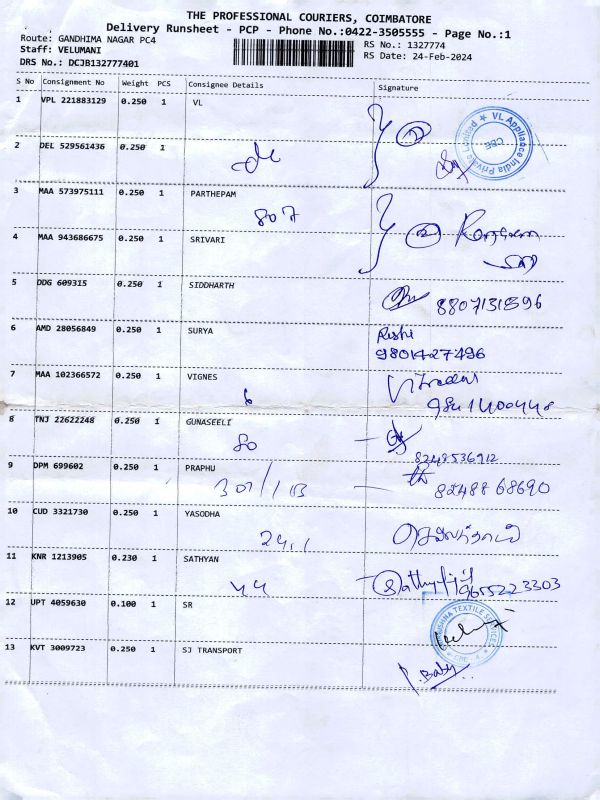 THE PROFESSIONAL COURIERS, COIMBATORE
Delivery Runsheet - PCP - Phone No.:0422-3505555 - Page No.:1
Route: GANDHIMA NAGAR PC4
RS No.: 1327774
Staff: VELUMANI
RS Date: 24-Feb-2024
DRS No.: DCJB132777401
S No Consignment No Weight PCS Consignee Details Signature
1 VPL 221883129 0.250 1 VL
VL Appliance India Private Limited ★ CBE
2 DEL 529561436 0.250 1
3 MAA 573975111 0.250 1 PARTHEPAM
807
4 MAA 943686675 0.250 1 SRIVARI
5 DDG 609315 0.250 1 SIDDHARTH
8807131596
6 AMD 28056849 0.250 1 SURYA
Rishi
9801427496
7 MAA 102366572 0.250 1 VIGNES
6
9841400448
8 TNJ 22622248 0.250 1 GUNASEELI
80
8248536912
9 DPM 699602 0.250 1 PRAPHU
307/1B
8248868690
10 CUD 3321730 0.250 1 YASODHA
11 KNR 1213905 0.230 1 SATHYAN
44
9655223303
12 UPT 4059630 0.100 1 SR
13 KVT 3009723 0.250 1 SJ TRANSPORT
P. Baby